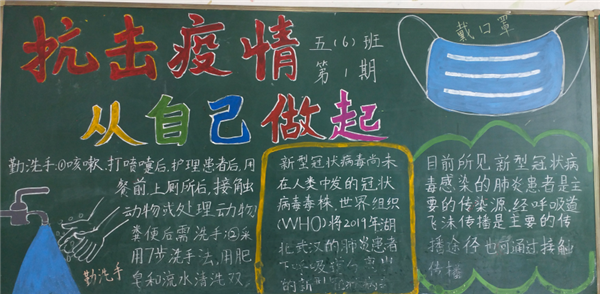 抗击疫情
五(6)班
第1期
从自己做起
戴口罩
勤洗手:①咳嗽、打喷嚏后,护理患者后,用
餐前上厕所后,接触
动物或处理动物
粪便后需洗手②采
用7步洗手法,用肥
皂和流水清洗双
勤洗手
新型冠状病毒尚未
在人类中发的冠状
病毒毒株,世界组织
(WHO)将2019年湖
北武汉的肺炎患者
下呼吸
的新型 病
目前所见新型冠状病
毒感染的肺炎患者是主
要的传染源,经呼吸道
飞沫传播是主要的传
播途径也可通过接触
传播